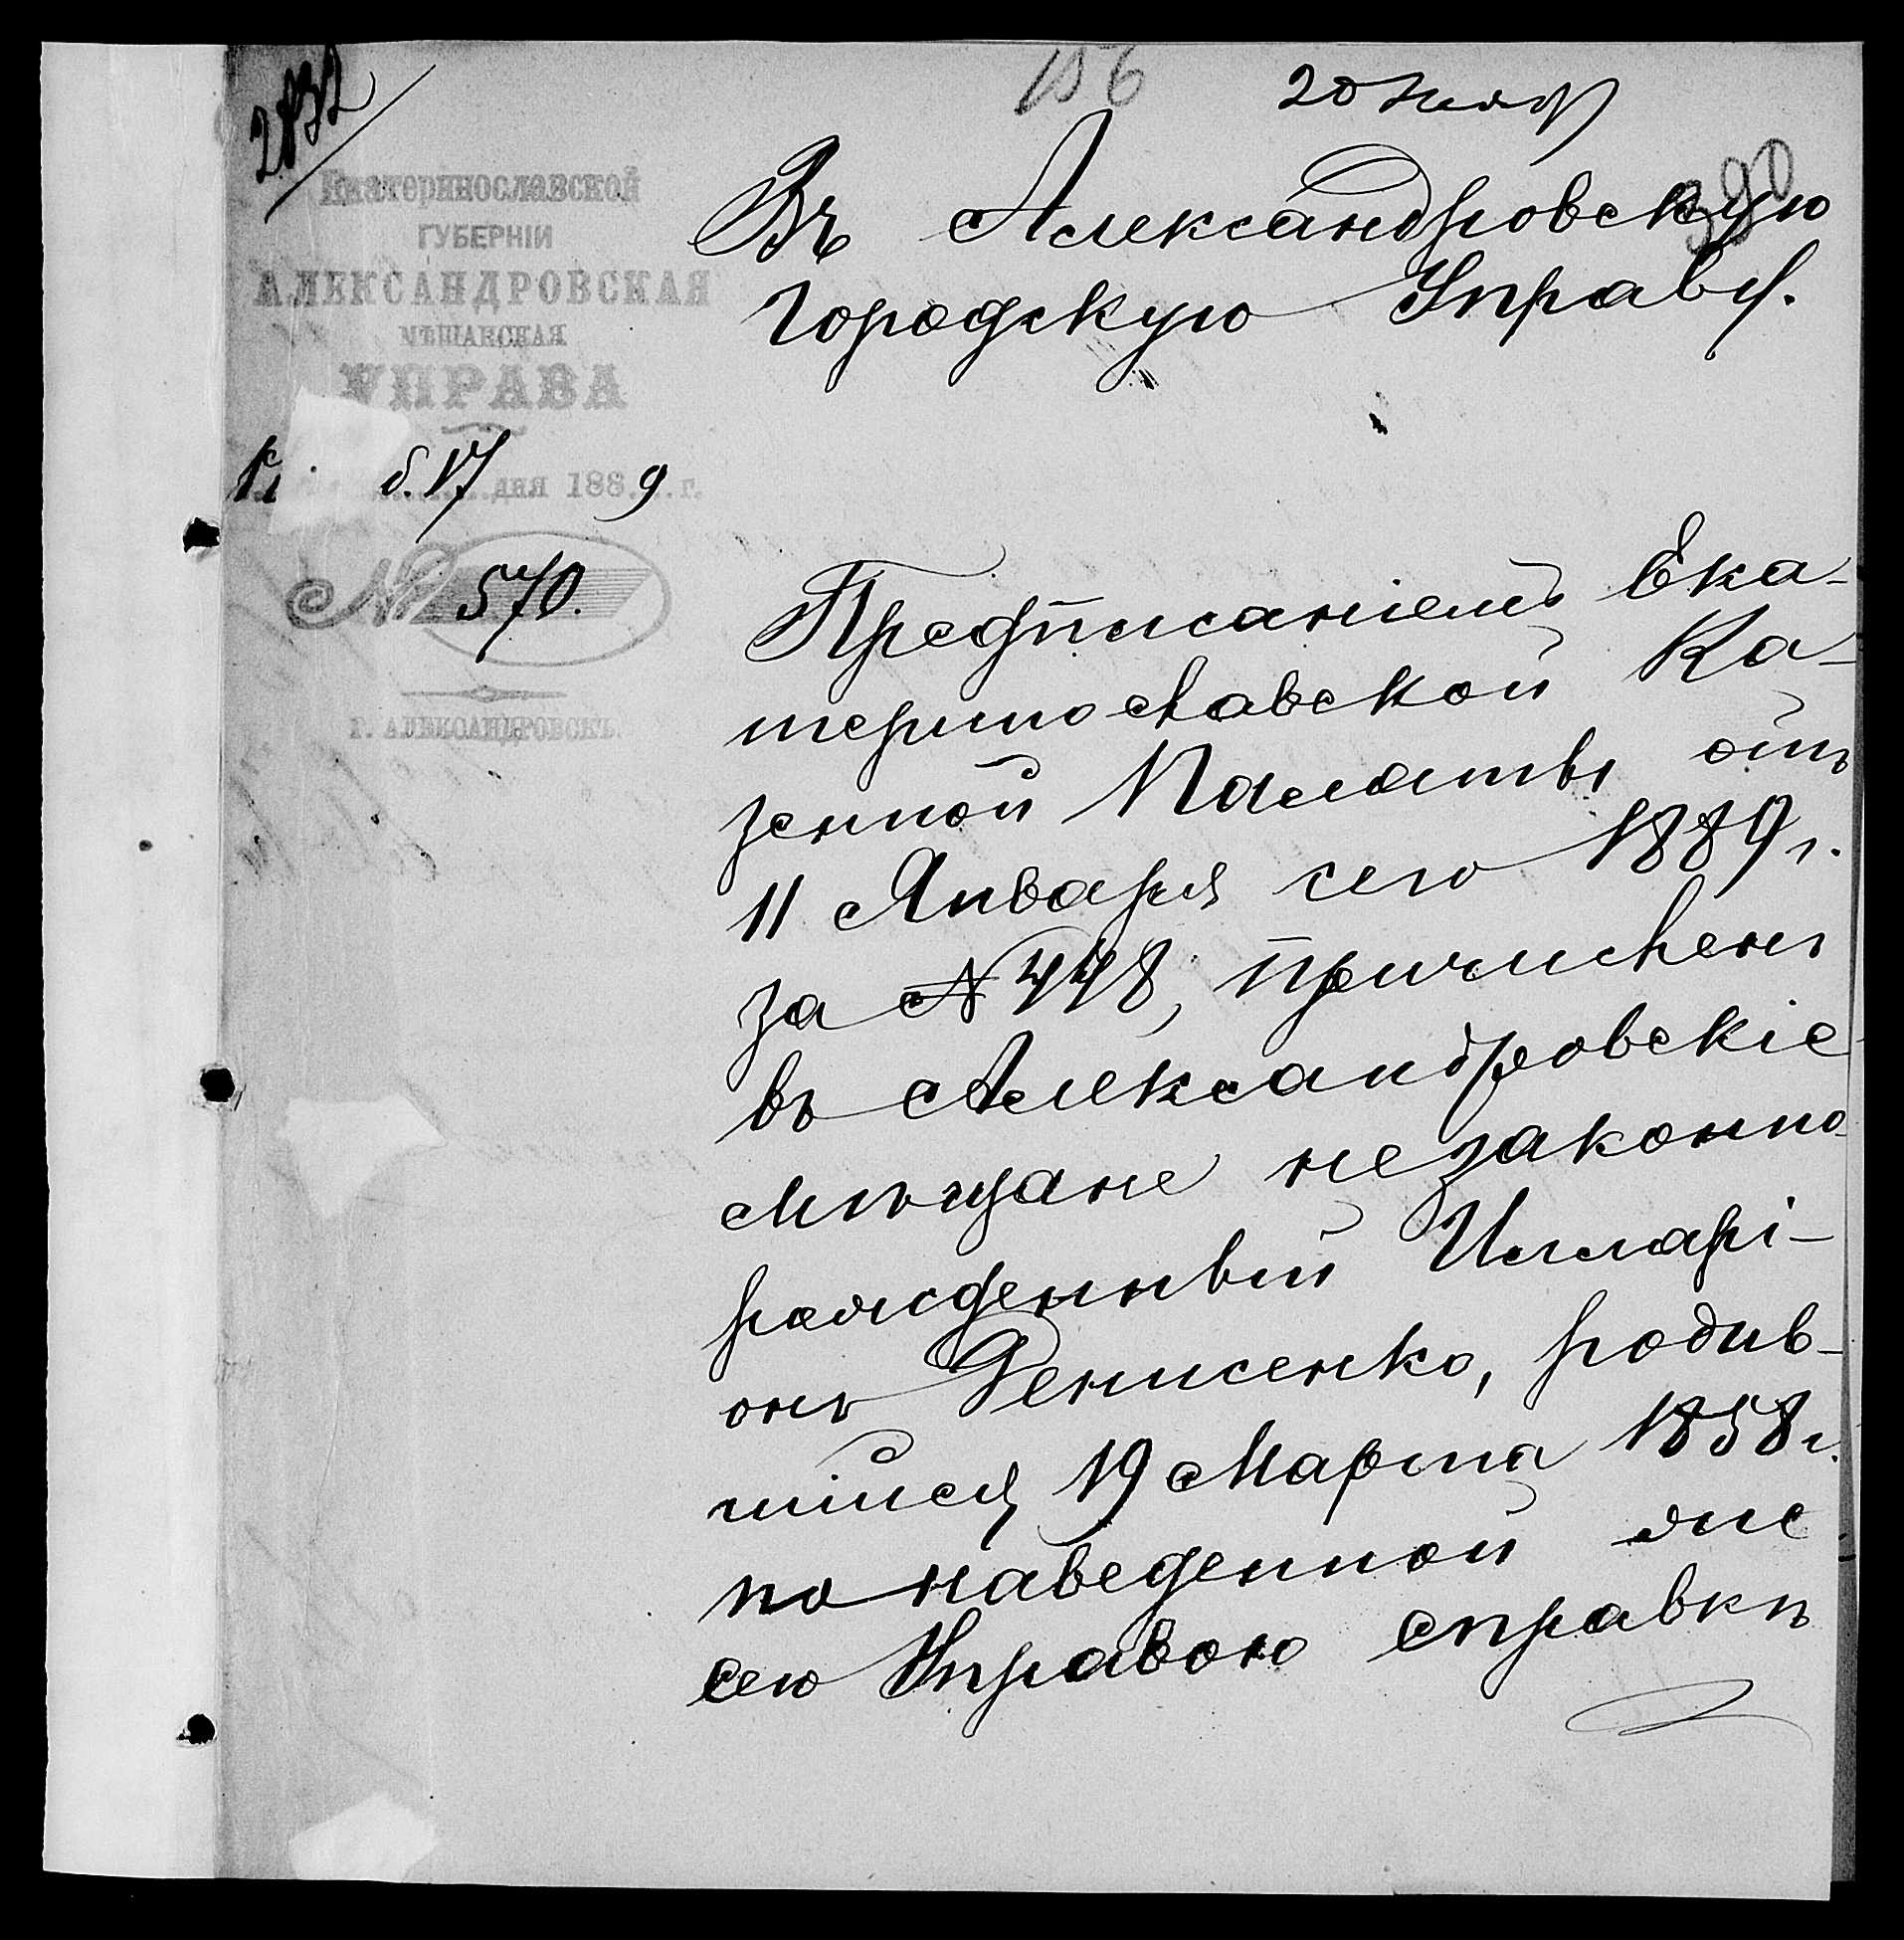 2832
156
20 Ноябр
390
Екатеринославской
ГУБЕРНІИ
АЛЕКСАНДРОВСКАЯ
МѢЩАНСКАЯ
УПРАВА
17
дня 1889 г.
№ 570.
Г. АЛЕКСАНДРОВСКЪ.
Въ Александровскую
Городскую Управу.
Предписаніемъ Ека-
теринославской Ка-
зенной Палаты отъ
11 Января сего 1889 г.
за № 448, причисленъ
въ Александровскіе
Мѣщане незаконно
рожденный Илларі-
онъ Денисенко, родив-
шійся 19 Марта 1858 г.
по наведенной же
сею Управою справкѣ